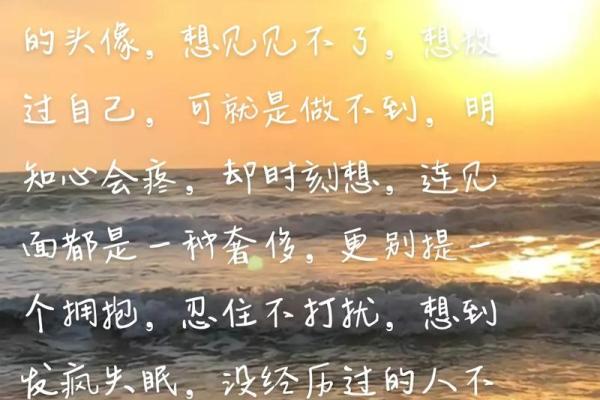 的头像，想见见不了，想放
过自己，可就是做不到，明
知心会疼，却时刻想，连见
面都是一种奢侈，更别提一
个拥抱，忍住不打扰，想到
发疯失眠，没经历过的人不